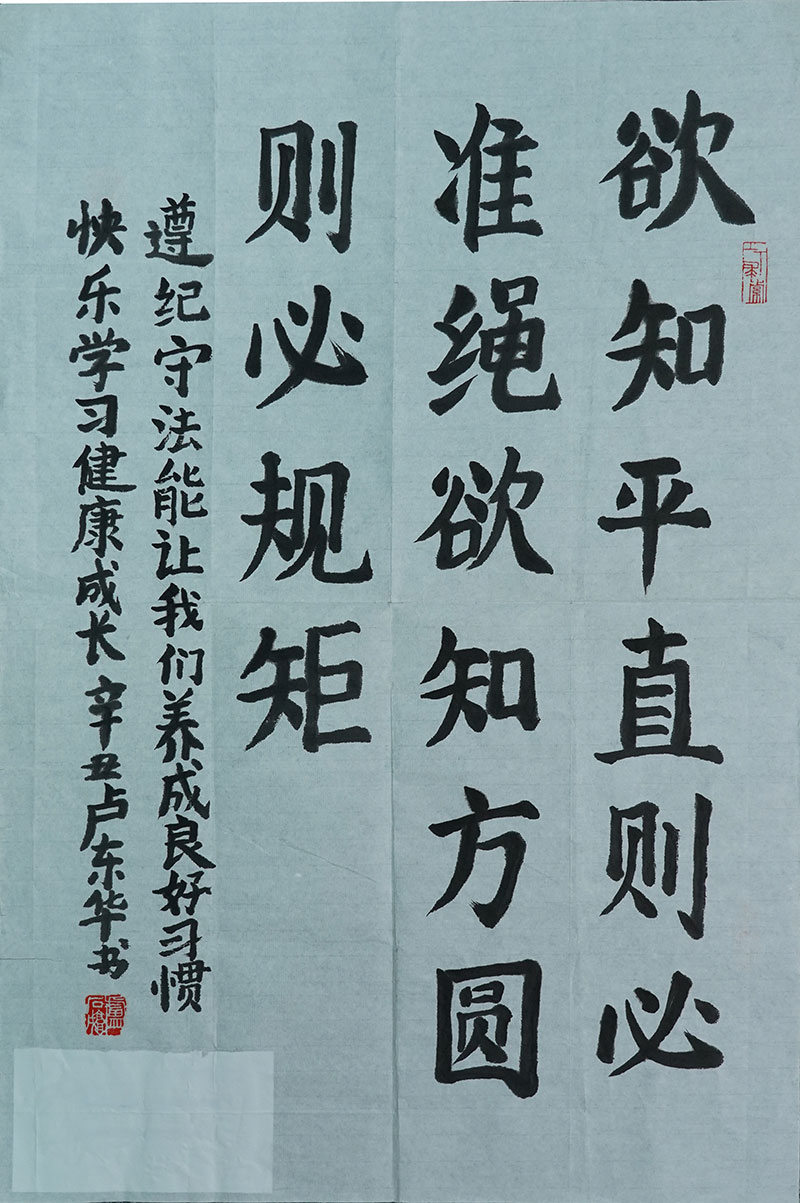 欲知平直则必
准绳欲知方圆
则必规矩
遵纪守法能让我们养成良好习惯
快乐学习健康成长辛丑卢东华书